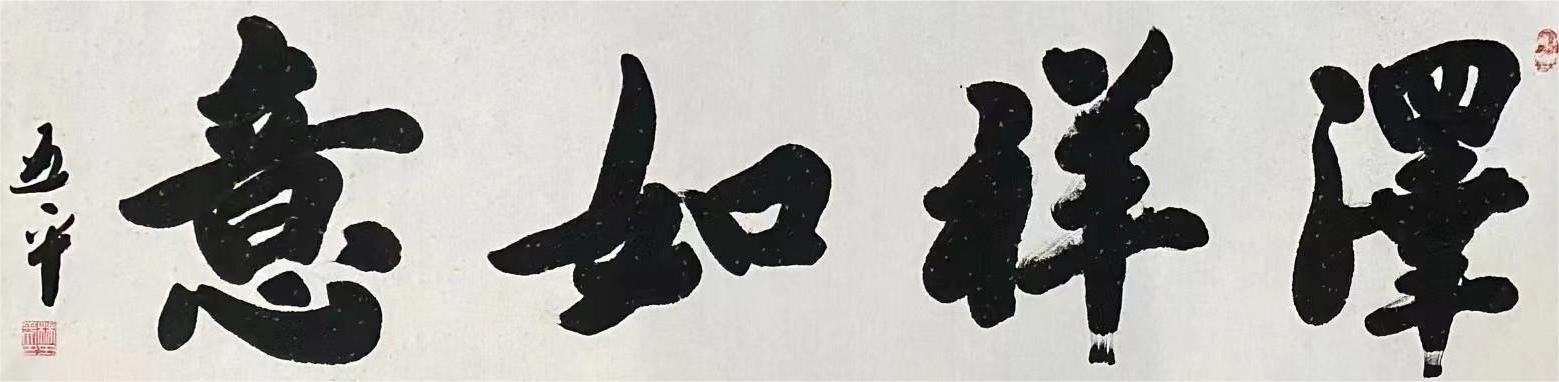 澤祥如意
五平